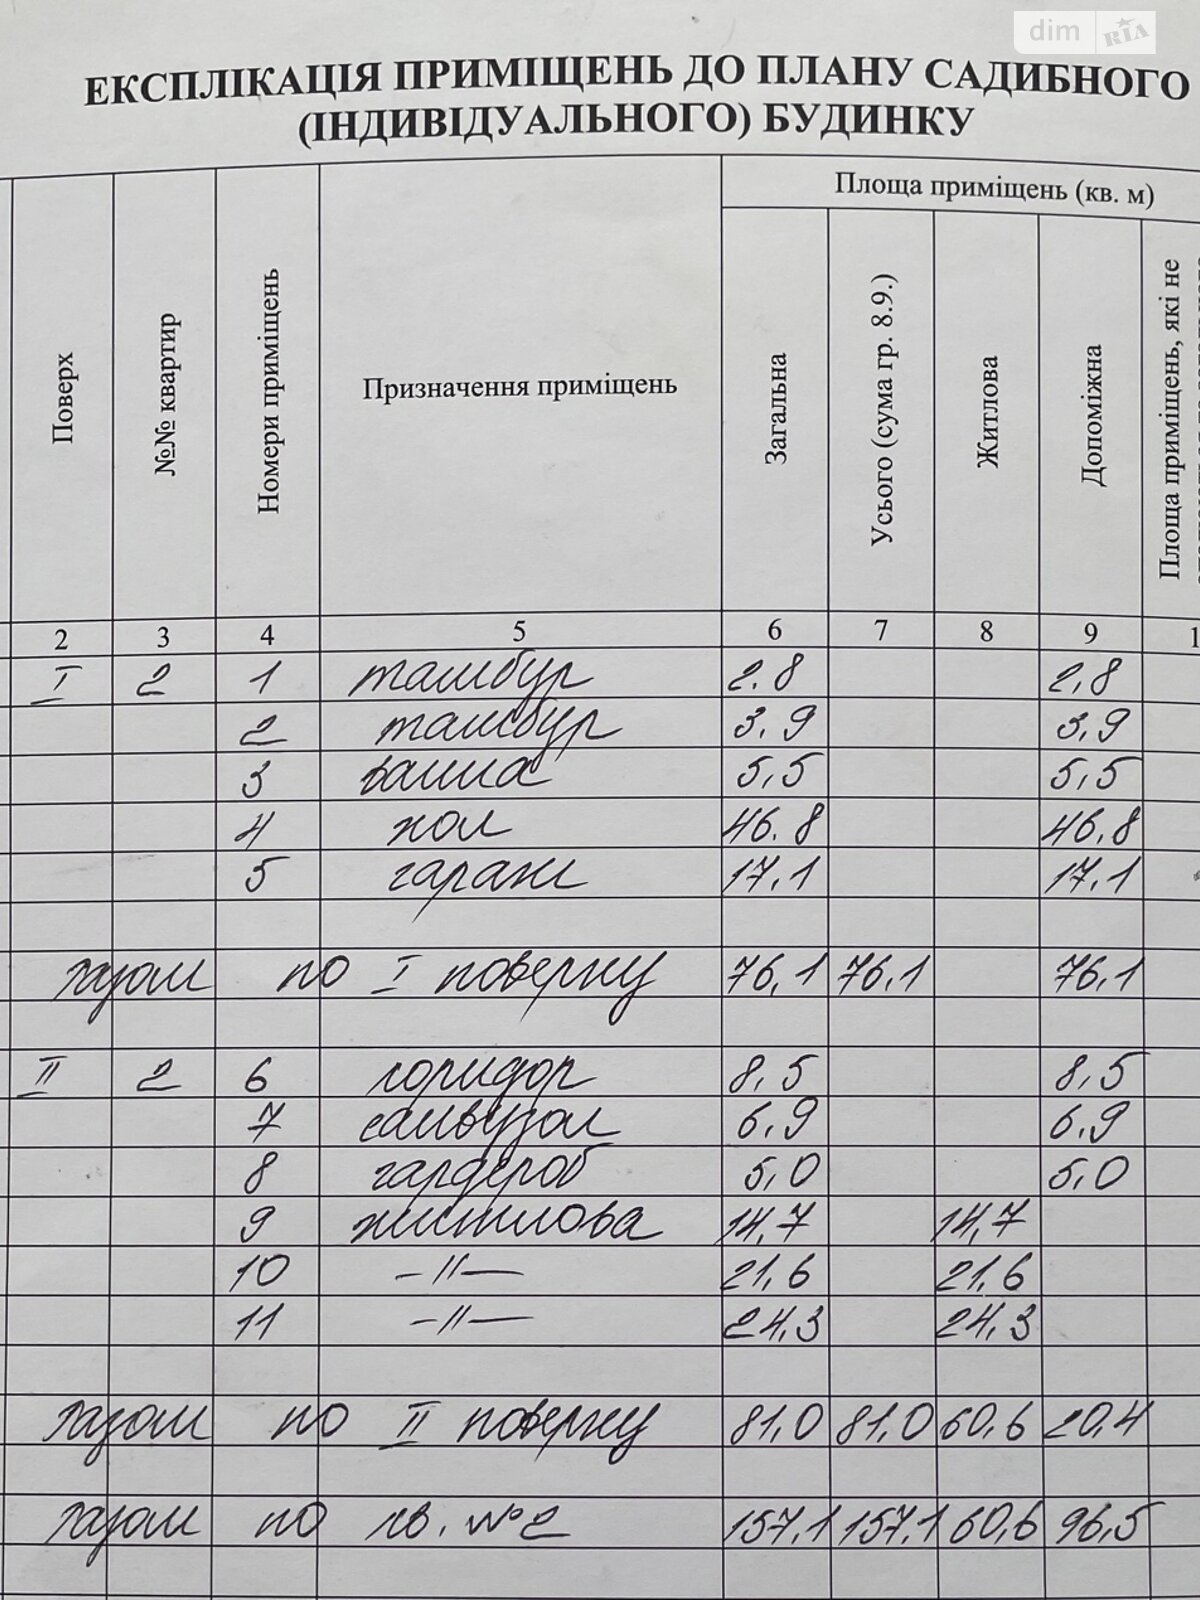 dim RIA
ЕКСПЛІКАЦІЯ ПРИМІЩЕНЬ ДО ПЛАНУ САДИБНОГО
(ІНДИВІДУАЛЬНОГО) БУДИНКУ
Площа приміщень (кв. м)
Поверх
№№ квартир
Номери приміщень
Призначення приміщень
Загальна
Усього (сума гр. 8.9.)
Житлова
Допоміжна
Площа приміщень, які не
2 3 4 5 6 7 8 9 1
I 2 1 тамбур 2.8 2,8
2 тамбур 3.9 3,9
3 ванна 5,5 5,5
4 хол 46.8 46,8
5 гараж 17.1 17.1
разом по I поверху 76,1 76.1 76.1
II 2 6 коридор 8,5 8,5
7 санвузол 6,9 6,9
8 гардероб 5,0 5,0
9 житлова 14,7 14,7
10 —//— 21,6 21,6
11 —//— 24,3 24,3
разом по II поверху 81,0 81,0 60,6 20,4
разом по кв. №2 157,1 157,1 60,6 96,5